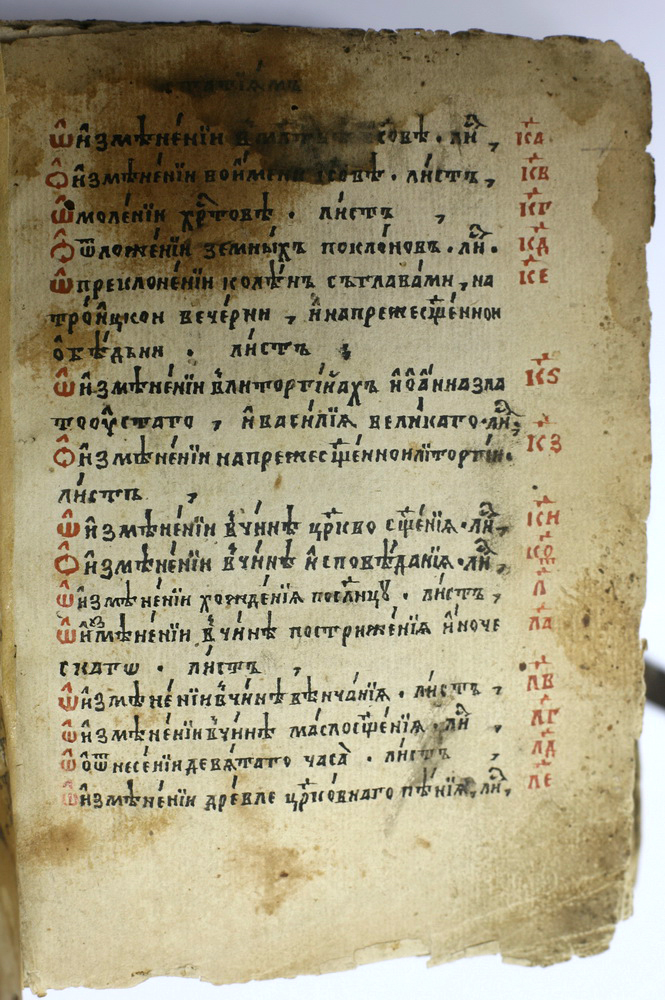 статїамъ
Ѡ҆ и҆змѣне́нїи в̾ ли҆, к҃а
Ѡ҆ и҆змѣне́нїи во и҆́мени і҆сⷭ҇овѣ . ли́стъ, к҃в
Ѡ҆ моле́нїи хрⷭ҇товѣ . ли́стъ , к҃г
Ѡ҆ ѿложе́нїи земны́хъ покло́новъ . лиⷭ҇ . к҃д
Ѡ҆ преклоне́нїи колѣ́нъ съ глава́ми, на к҃е
тро́ицкои вече́рни , и҆ на прежесщ҃е́ннои
ѡ҆бѣ́дьни . ли́стъ ,
Ѡ҆ и҆змѣне́нїи в̾ литоргі́ахъ и҆ѡ҆а́нна зла к҃ѕ
тоꙋ́стаго , и҆ васи́лїѧ вели́каго . лиⷭ҇,
Ѡ҆ и҆змѣне́нїи на прежесщ҃е́ннои лїторгі́и . к҃з
ли́стъ ,
Ѡ҆ и҆змѣне́нїи в̾ чи́нѣ цр҃кво сщ҃е́нїѧ . лиⷭ҇, к҃и
Ѡ҆ и҆змѣне́нїи в̾ чи́нѣ и҆сповѣ́данїѧ . лиⷭ҇, к҃ѳ
Ѡ҆ и҆змѣне́нїи хожде́нїѧ посл҃нцꙋ . ли́стъ, л҃
Ѡ҆ и҆змѣне́нїи в̾ чи́нѣ постриже́нїѧ и҆́ноче л҃а
скагѡ . ли́стъ ,
Ѡ҆ и҆змѣне́нїи в̾ чи́нѣ вѣнча́нїѧ . ли́стъ , л҃в
Ѡ҆ и҆змѣне́нїи в̾ чи́нѣ маслосщ҃е́нїѧ . лиⷭ҇ , л҃г
Ѡ҆ ѿнесе́нїи девѧ́таго часа̀ . ли́стъ , л҃д
Ѡ҆ и҆змѣне́нїи дре́вле цр҃ко́внаго пѣ́нїѧ, лиⷭ҇, л҃е